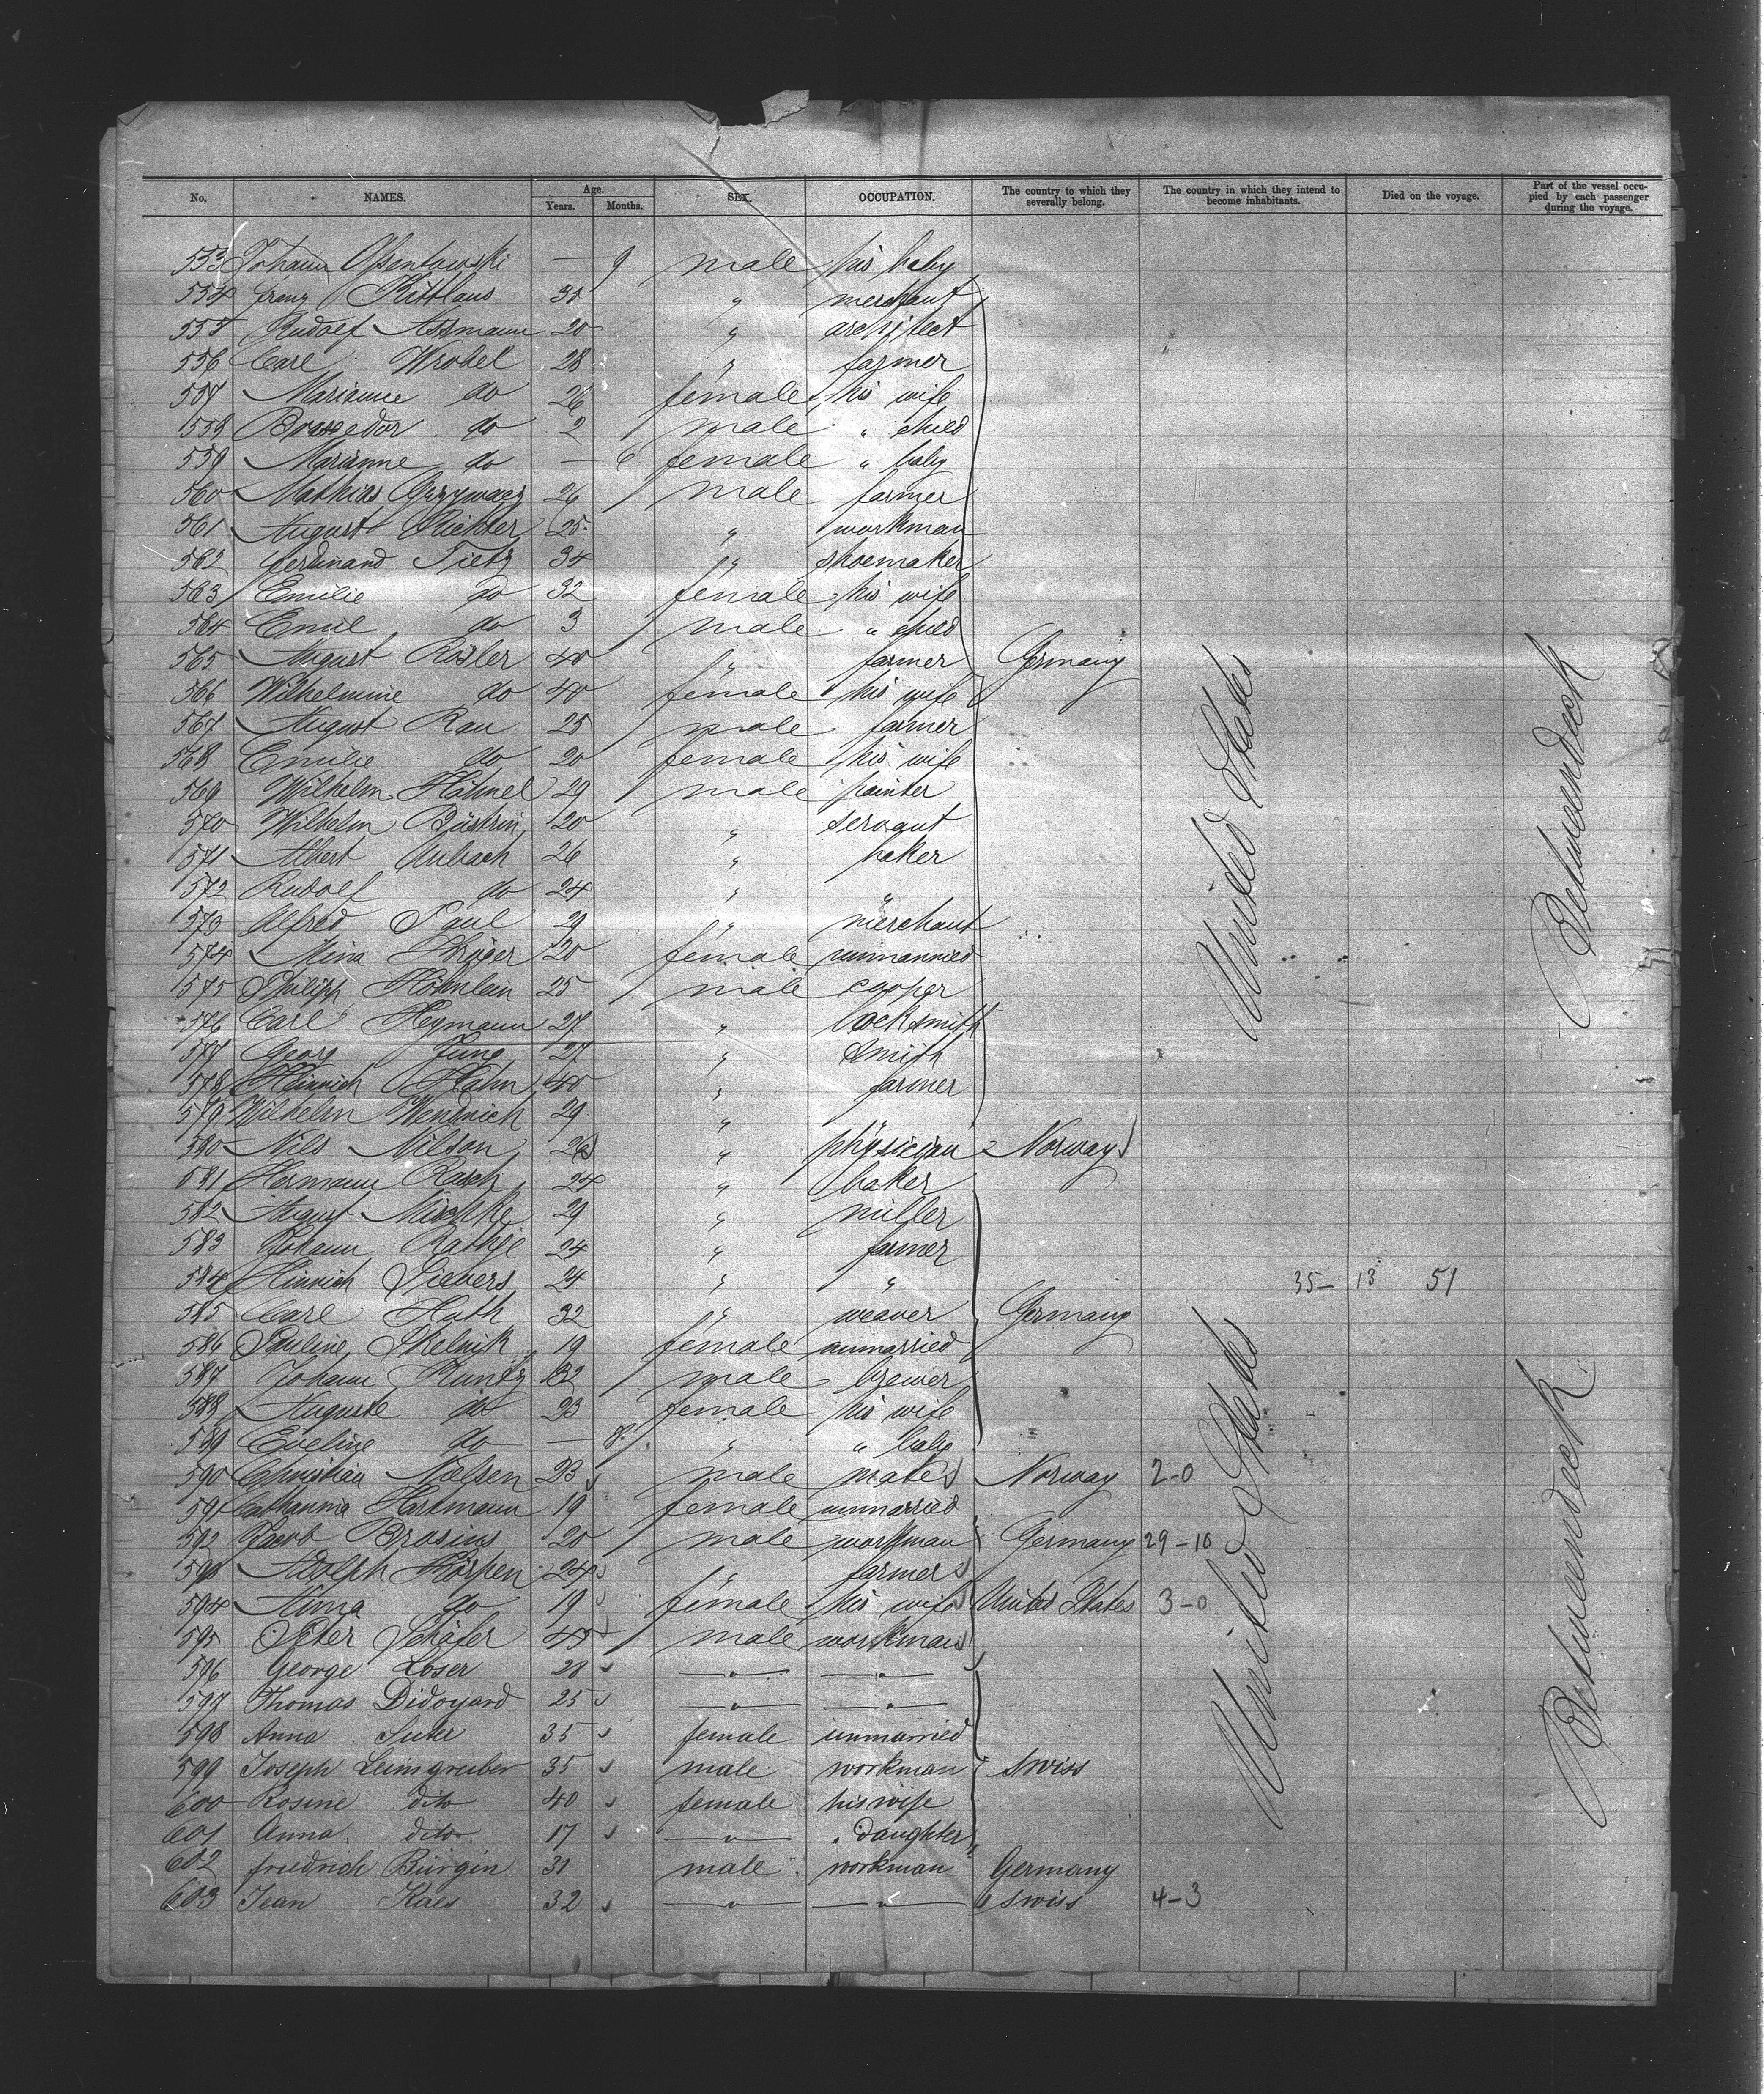 No. NAMES. Age. Years. Months. SEX. OCCUPATION. The country to which they severally belong. The country in which they intend to become inhabitants. Died on the voyage. Part of the vessel occupied by each passenger during the voyage.
553 Johann — 9 male his baby
554 Franz Kittlaus 30 " merchant
555 Rudolf Assmann 20 " architect
556 Carl Wrobel 28 " farmer
557 Marianne do 26 female his wife
558 do 2 male " child
559 Marianne do — 6 female " baby
560 Mathias 26 male farmer
561 August Richter 25 " workman
562 Ferdinand Tietz 34 " shoemaker
563 Emilie do 32 female his wife
564 Emil do 3 male " child
565 August Rösler 40 " farmer Germany
566 Wilhelmine do 40 female his wife
567 August Rau 25 male farmer
568 Emilie do 20 female his wife
569 Wilhelm Höhnel 29 male painter
570 Wilhelm Büstrin 20 " servant
571 Albert Aubach 26 " baker
572 Rudolf do 24 " "
573 Alfred Paul 29 " merchant
574 Mina Kröger 20 female unmarried
575 Philipp Höhnlein 25 male cooper
576 Carl Heymann 27 " locksmith
577 Georg Jung 27 " smith
578 Heinrich Hahn 40 " farmer
579 Wilhelm Wendrich 29 " "
580 Nils Nilson 26 " physician 2 Norway
581 Hermann Rasch 24 " baker
582 August Mischke 29 " miller
583 Johann Rathje 24 " farmer
584 Hinrich Sievers 24 " " 35- 13 51
585 Carl Huth 32 " weaver Germany
586 Pauline Skelnik 19 female unmarried
587 Johann Kuntz 32 male brewer
588 Auguste do 23 female his wife
589 Eveline do — 8 " " baby
590 Christian Nielsen 23 male mate Norway 2-0
591 Catharina Hartmann 19 female unmarried
592 Jacob Brosius 20 male workman Germany 29-10
593 Adolph Körpen 24 " farmer
594 Anna do 19 female his wife United States 3-0
595 Peter Schäfer 45 male workman
596 George Loser 28 " "
597 Thomas Didoyard 25 " "
598 Anna Suter 35 female unmarried
599 Joseph Leimgruber 35 male workman Swiss
600 Rosine dito 40 female his wife
601 Anna dito 17 " " daughter
602 Friedrich Bürgin 31 male workman Germany
603 Jean Kaes 32 " " 6 Swiss 4-3
United States
United States
Betweendeck
Betweendeck